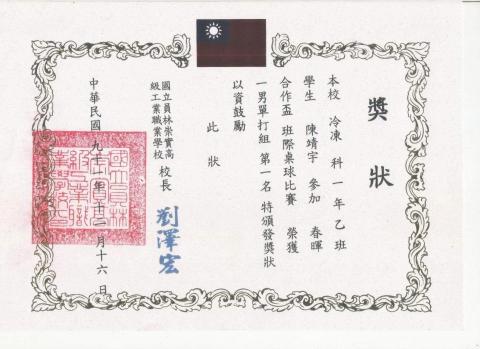 獎狀
本校 冷凍 科一年乙班
學生 陳靖宇 參加 春暉
合作盃 班際桌球比賽 榮獲
一男單打組 第一名 特頒發獎狀
以資鼓勵
此狀
國立員林崇實高
級工業職業學校 校長 劉澤宏
中華民國 九十一年 十二月十六日